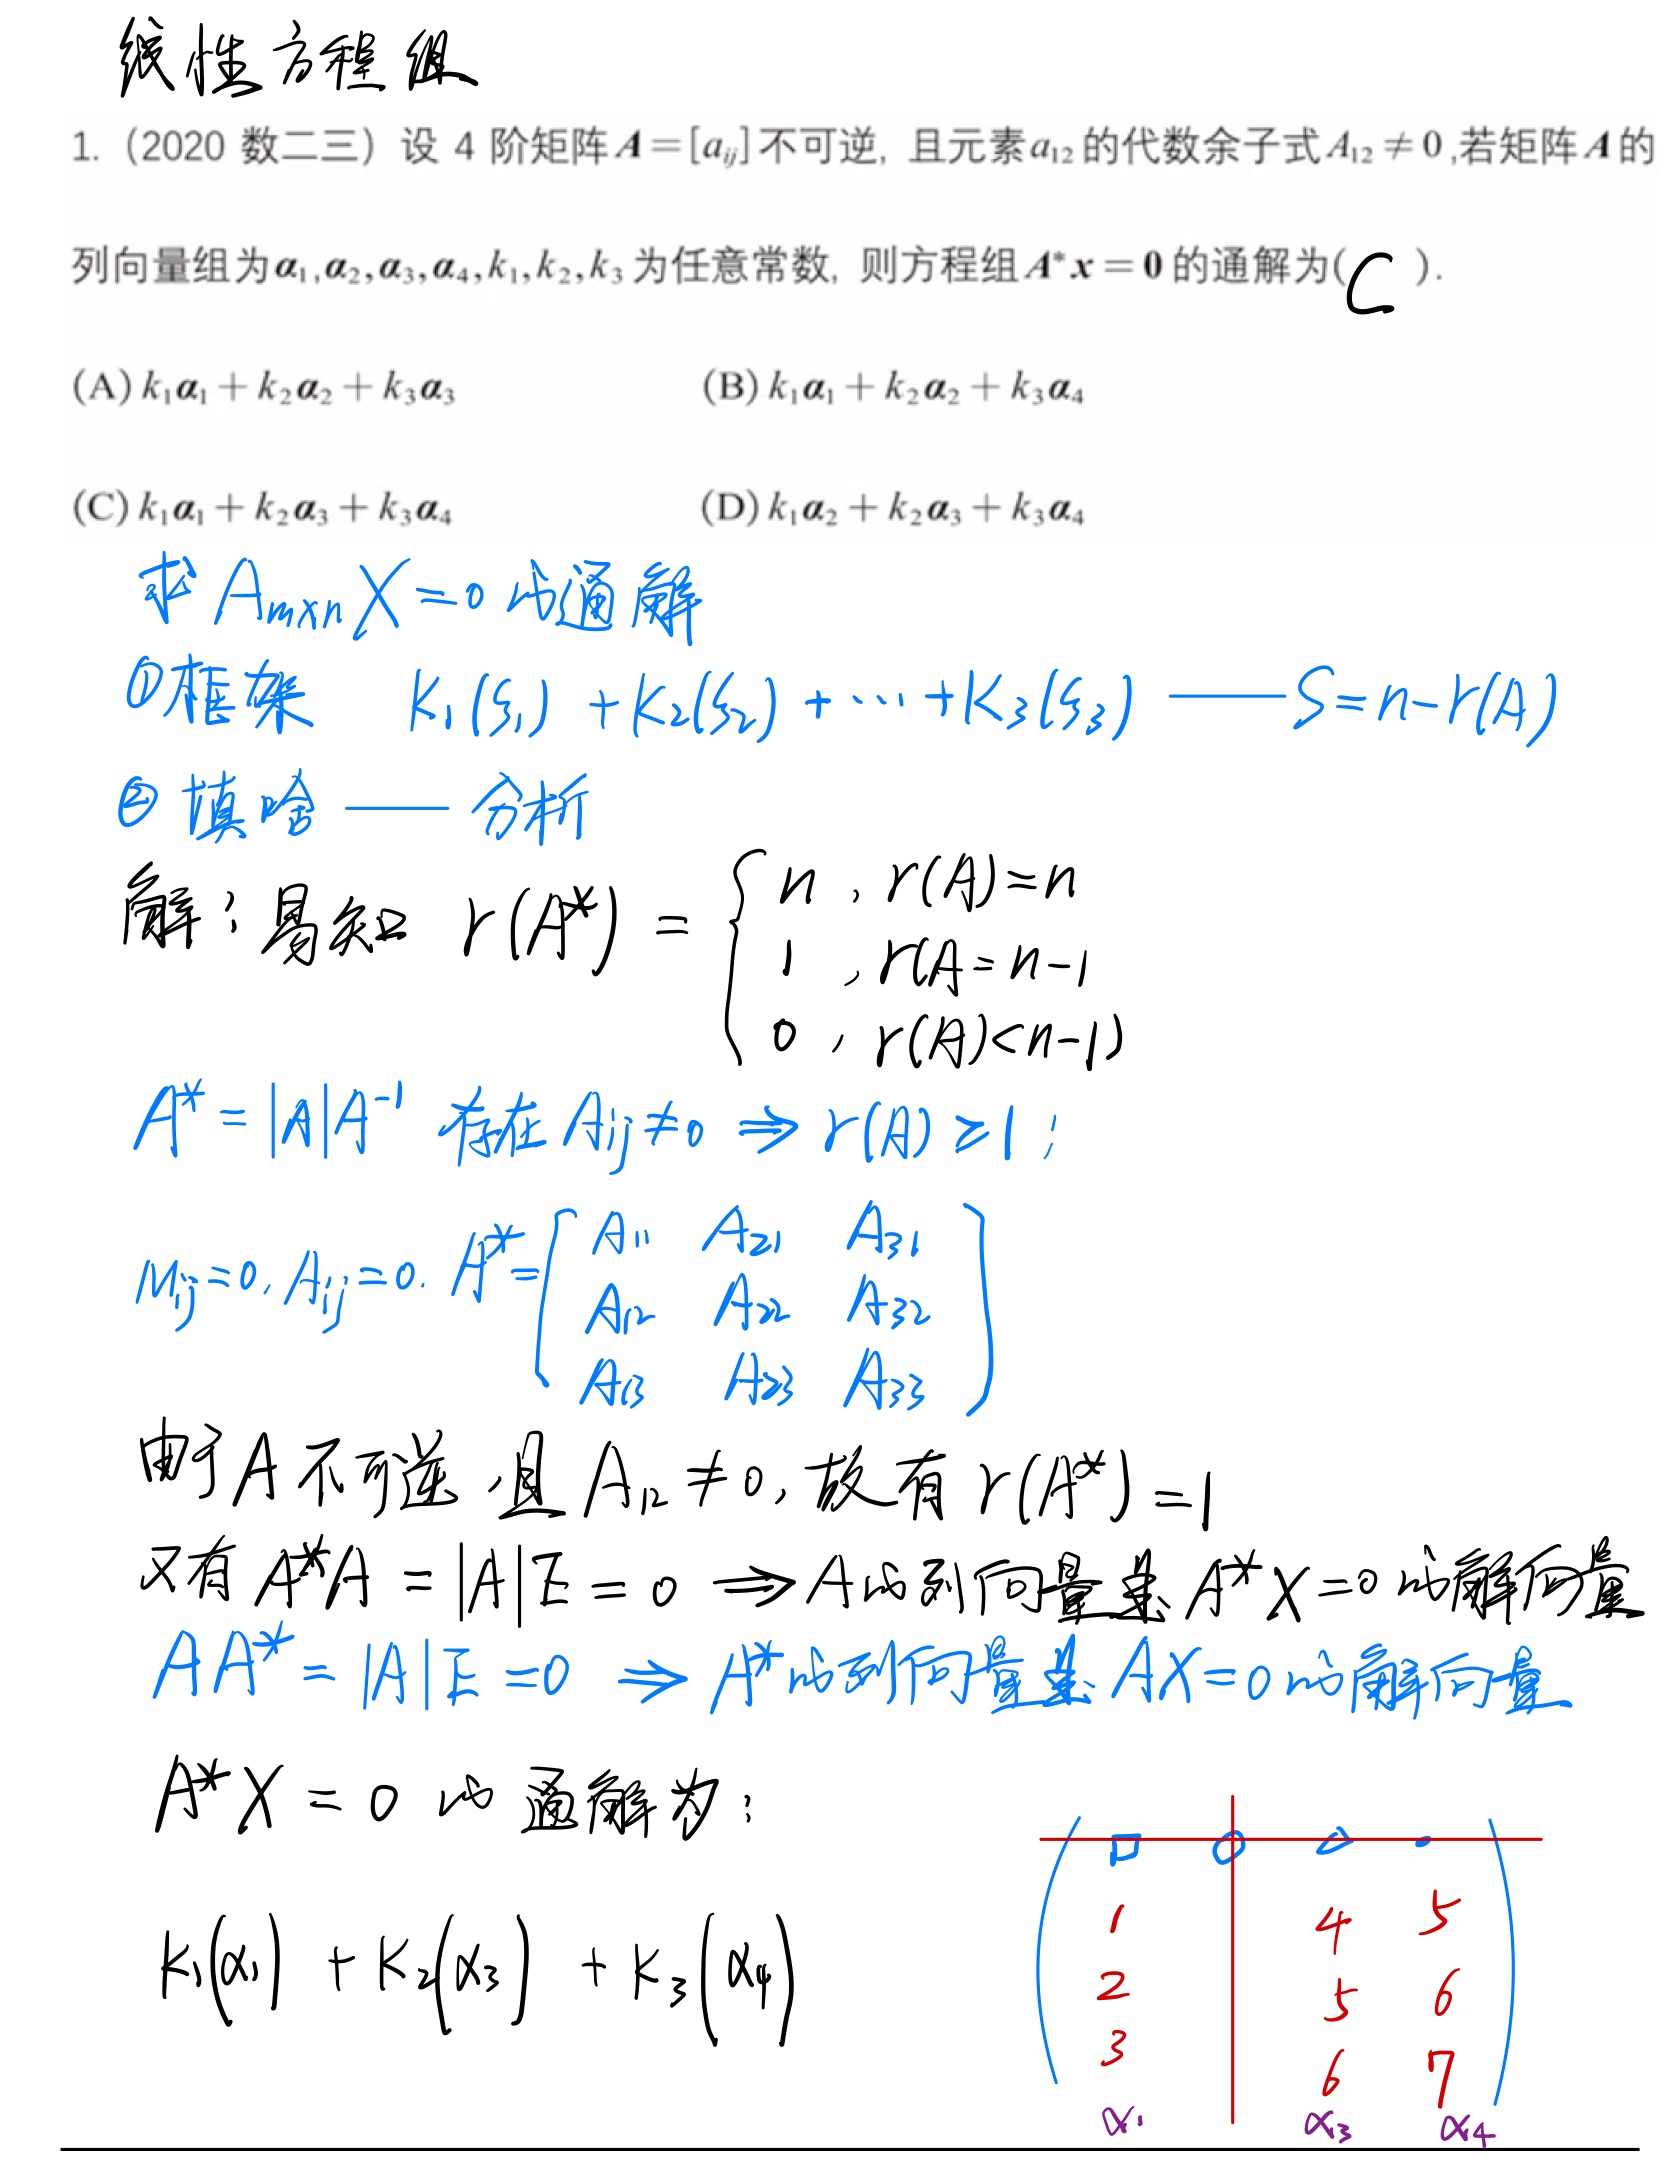 线性方程组
1.(2020 数二三)设 4 阶矩阵 A=[aᵢⱼ]不可逆, 且元素a₁₂的代数余子式A₁₂≠0,若矩阵A的
列向量组为α₁,α₂,α₃,α₄,k₁,k₂,k₃为任意常数, 则方程组A*x=0的通解为( C ).
(A) k₁α₁+k₂α₂+k₃α₃ (B) k₁α₁+k₂α₂+k₃α₄
(C) k₁α₁+k₂α₃+k₃α₄ (D) k₁α₂+k₂α₃+k₃α₄
求 Aₘₓₙ X=0 的通解
①框架 K₁(ξ₁) +K₂(ξ₂) +···+K₃(ξ₃) —— S=n-r(A)
② 填啥 —— 分析
解:易知 r(A*) = { n , r(A)=n
1 , r(A=n-1
0 , r(A)<n-1)
A* = |A|A⁻¹ 存在 Aᵢⱼ≠0 ⇒ r(A) ≥1;
Mᵢⱼ=0, Aᵢⱼ=0. A*= [ A₁₁ A₂₁ A₃₁
A₁₂ A₂₂ A₃₂
A₁₃ A₂₃ A₃₃ ]
由于A不可逆,且 A₁₂≠0,故有 r(A*)=1
又有 A*A = |A|E = 0 ⇒ A的列向量是 A*X=0 的解向量
AA* = |A|E =0 ⇒ A*的列向量是 AX=0 的解向量
A*X = 0 的通解为:
K₁(α₁) + K₂(α₃) + K₃(α₄)
1 4 5
2 5 6
3 6 7
α₁ α₃ α₄